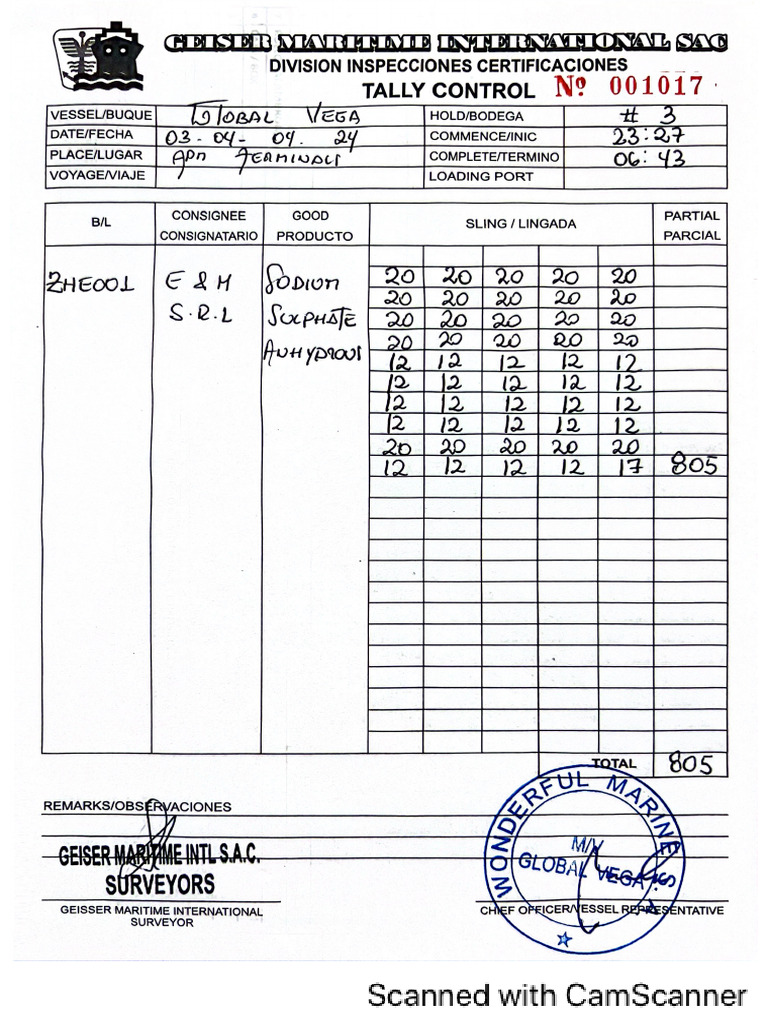 GEISER MARITIME INTERNATIONAL SAC
DIVISION INSPECCIONES CERTIFICACIONES
TALLY CONTROL Nº 001017
VESSEL/BUQUE Global Vega HOLD/BODEGA # 3
DATE/FECHA 03-04- 04. 24 COMMENCE/INIC 23:27
PLACE/LUGAR APM TERMINALS COMPLETE/TERMINO 06:43
VOYAGE/VIAJE LOADING PORT
B/L CONSIGNEE CONSIGNATARIO GOOD PRODUCTO SLING / LINGADA PARTIAL PARCIAL
ZHE001 E & M SODIUM 20 20 20 20 20
20 20 20 20 20
S.R.L SULPHATE 20 20 20 20 20
20 20 20 20 20
ANHYDROUS 12 12 12 12 12
12 12 12 12 12
12 12 12 12 12
12 12 12 12 12
20 20 20 20 20
12 12 12 12 17 805
TOTAL 805
REMARKS/OBSERVACIONES
GEISER MARITIME INTL S.A.C.
SURVEYORS
GEISSER MARITIME INTERNATIONAL
SURVEYOR
WONDERFUL MARINE S.A.
M/V
GLOBAL VEGA
CHIEF OFFICER/VESSEL REPRESENTATIVE
Scanned with CamScanner